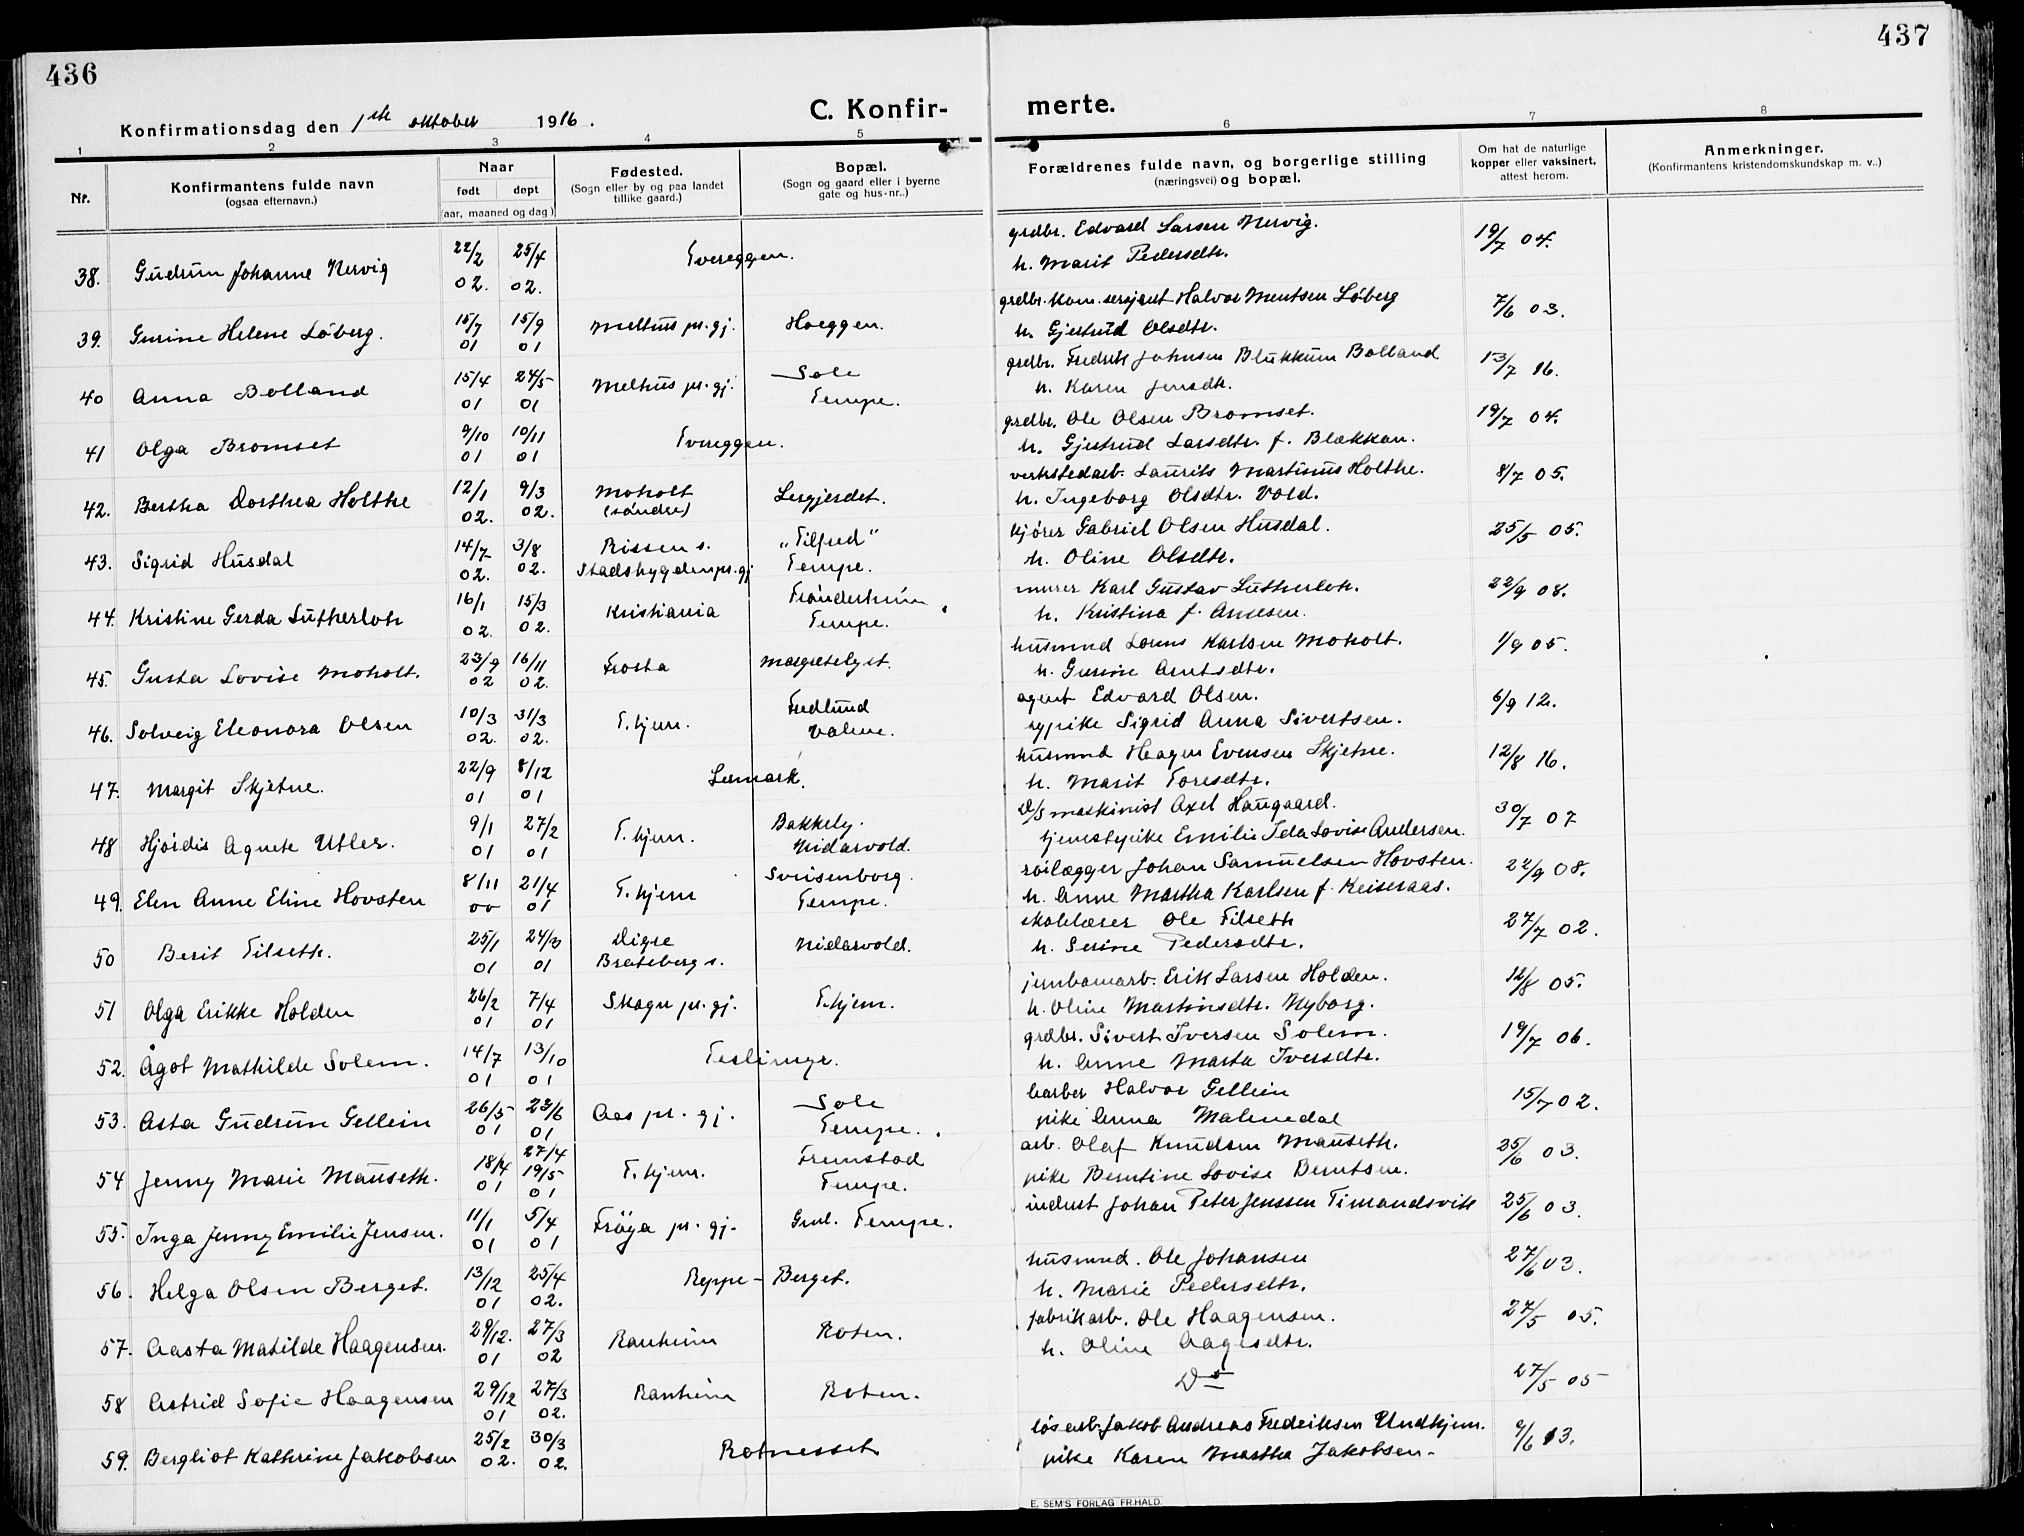 436
437
Konfirmationsdag den 1ste oktober 1916.
C. Konfir-
merte.
1 2 3 4 5 6 7 8
Nr.
Konfirmantens fulde navn
(ogsaa efternavn.)
Naar
født døpt
(aar, maaned og dag)
Fødested.
(Sogn eller by og paa landet
tillike gaard.)
Bopæl.
(Sogn og gaard eller i byerne
gate og hus-nr..)
Forældrenes fulde navn, og borgerlige stilling
(næringsvei) og bopæl.
Om hat de naturlige
kopper eller vaksinert,
attest herom.
Anmerkninger.
(Konfirmantens kristendomskundskap m. v..)
38. Gudrun Johanne Nervig 22/2 02. 25/4 02. Tvereggen. grdbr. Edvard Larsen Nervig. 19/7 04.
h. Marit Pedersdtr.
39. Gurine Helene Løberg. 15/7 01 15/9 01 Melhus pr. gj. Hoeggen. grdbr. kom. sersjant Halvor Mentsen Løberg 7/6 03.
h. Gjertrud Olsdtr.
40 Anna Bolland 15/4 01 24/5 01 Melhus pr. gj. Sole Tempe. grdbr. Fredrik Johnsen Blukkum Bolland 13/7 16.
h. Karen Jensdtr.
41 Olga Bromset 9/10 01 10/11 01 Tvereggen. grdbr. Ole Olsen Bromset. 19/7 04.
h. Gjertrud Larsdtr. f. Blekkan.
42. Bertha Dorthea Holthe 12/1 02. 9/3 02. Moholt (søndre) Lergjerdet. verkstedarb. Laurits Martinus Holthe. 8/7 05.
h. Ingeborg Olsdtr. Vold.
43. Sigrid Husdal 14/7 02. 3/8 02. Rissen s. Stadsbygden pr. gj „Tilfred" Tempe. kjører Gabriel Olsen Husdal. 25/5 05.
h. Oline Olsdtr.
44. Kristine Gerda Lutherloh 16/1 02. 15/3 02. Kristiania Trønderheim, Tempe. murer Karl Gustav Lutherloh. 22/9 08.
h. Kristina f. Arnesen.
45. Gusta Lovise Moholt. 23/9 02 16/11 02. Frosta Margretelyst. husmnd Lorens Karlsen Moholt. 1/9 05.
h. Gurine Arntsdtr.
46. Solveig Eleonora Olsen 10/3 02. 31/3 02. T.hjem. Fredlund Valene. agent Edvard Olsen. 6/9 12.
sypike Sigrid Anna Sivertsen.
47. Margit Skjetne. 22/9 01 8/12 01 Lermark. husmnd Haagen Evensen Skjetne. 12/8 16.
h. Marit Toresdtr.
48 Hjørdis Agnete Utler. 9/1 01 27/2 01 T.hjem. Bakkely. Nidarvold. D/S maskinist Axel Haugaard. 30/7 07
tjenestepike Emilie Ida Lovise Andersen.
49. Elen Anne Eline Hovsten 8/11 00 21/4 01 T.hjem Svensenborg. Tempe. røilægger Johan Samuelsen Hovsten. 22/9 08.
h. Anne Martha Karlsen f. Keiseraas.
50 Berit Tilseth. 25/1 01 24/3 01 Digre Bratsberg s. Nidarvold. skolelærer Ole Tilseth 27/7 02.
h. Serine Pedersdtr.
51 Olga Erikke Holden 26/2 01 7/4 01 Skogn pr. gj. T.hjem. jernbanearb. Erik Larsen Holden. 12/8 05.
h. Oline Martinsdtr. Nyborg.
52. Ågot Mathilde Solem. 14/7 01 13/10 01 Teslimyr. grdbr. Sivert Iversen Solem. 19/7 06.
h. Anne Marta Iversdtr.
53. Asta Gudrun Gellein 26/5 01 23/6 01 Aas pr. gj. Sole Tempe. barber Halvor Gellein 15/7 02.
pike Anna Malmedal
54 Jenny Marie Mauseth. 18/4 01 27/4 19/5 01 T.hjem. Fremstad Tempe. arb. Olaf Knudsen Mauseth. 25/6 03.
pike Berntine Lovise Berntsen.
55. Inga Jenny Emilie Jensen. 11/1 01 5/4 01 Frøya pr. gj. Grul. Tempe. inderst Johan Peter Jenssen Timandsvik 25/6 03.
56. Helga Olsen Berget. 13/12 01 25/4 02. Reppe - Berget. husmnd. Ole Johansen 27/6 03.
h. Marie Pedersdtr.
57. Aasta Matilde Haagensen. 29/12. 01 27/3 02 Ranheim Roten. fabrikarb. Ole Haagensen. 27/5 05.
h. Oline Aagesdtr.
58 Astrid Sofie Haagensen 29/12 01 27/3 02. Ranheim Roten. Do 27/5 05
59. Bergliot Kathrine Jakobsen 25/2 02. 30/3 02. Rotnesset løsarb. Jakob Andreas Fredriksen Undhjem. 9/6 13.
pike Karen Martha Jakobsen.
E. SEM'S FORLAG FR.HALD.